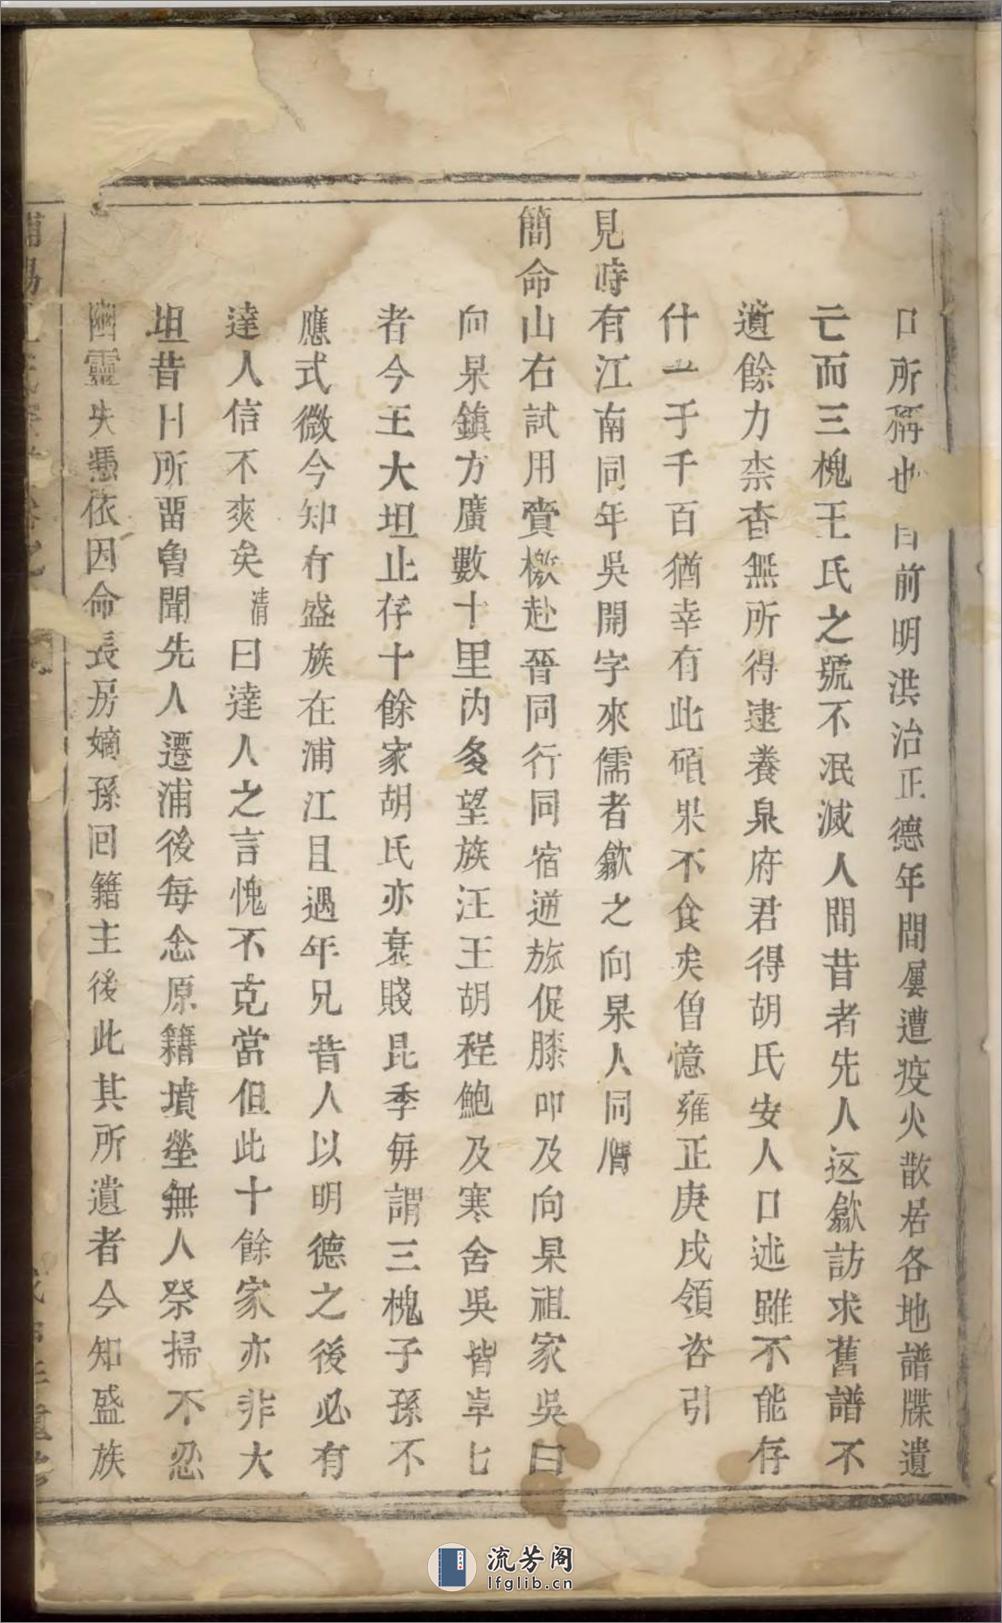 口所稱也自前明洪治正德年間屢遭疫火散居各地譜牒遺
亡而三槐王氏之號不泯滅人間昔者先人返歙訪求舊譜不
遺餘力柰杳無所得逮養泉府君得胡氏安人口述雖不能存
什一于千百猶幸有此碩果不食矣曾憶雍正庚戌領咨引
見時有江南同年吳開字來儒者歙之向杲人同膺
簡命山右試用賫檄赴晉同行同宿逰旅促膝叩及向杲祖家吳曰
向杲鎮方廣數十里內多望族汪王胡程鮑及寒舍吳皆卓七
者今王大坦止存十餘家胡氏亦衰賤昆季每謂三槐子孫不
應式微今知有盛族在浦江且遇年兄昔人以明德之後必有
達人信不爽矣清曰達人之言愧不克當但此十餘家亦非大
坦昔日所畱魯聞先人遷浦後每念原籍墳塋無人祭掃不忍
幽靈失憑依因命長房嫡孫回籍主後此其所遺者今知盛族
流芳阁
lfglib.cn